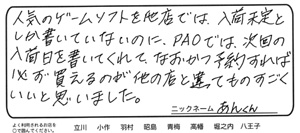 人気のゲームソフトを他店では、入荷未定と
しか書いていないのに、PAOでは、次回の
入荷日を書いてくれて、なおかつ予約すれば
必ず買えるのが他の店と違ってものすごく
いいと思いました。
ニックネーム あんくん
よく利用されるお店を
○で囲んでください。
立川 小作 羽村 昭島 青梅 高幡 堀之内 八王子